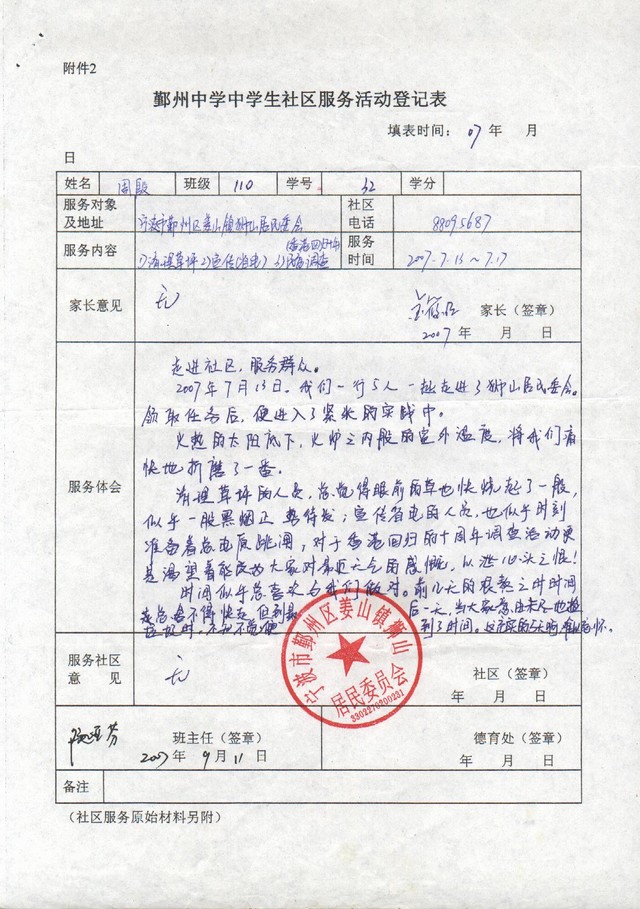 附件2
鄞州中学中学生社区服务活动登记表
填表时间：07 年 月
日
姓名 周 班级 110 学号 32 学分
服务对象及地址 宁波市鄞州区姜山镇狮山居民委会 社区电话 88095687
(香港回归十年)
服务内容 1)清理草坪 2)宣传(省电) 3)民意调查 服务时间 2007-7.13～7.17
家长意见 无 家长（签章）
2007 年 月 日
服务体会
走进社区，服务群众。
2007年7月13日，我们一行5人一起走进了狮山居民委会。
领取任务后，便进入了紧张的实践中。
火热的太阳底下，火炉之内般的室外温度，将我们痛
快地折磨了一番。
清理草坪的人员，总觉得眼前的草也快烧起了一般，
似乎一股黑烟正蓄势待发；宣传省电的人员，也似乎时刻
准备着总电反跳闸，对于香港回归的十周年调查活动更
是渴望着能改为大家对最近天气的感慨，以泄心头之恨！
时间似乎总喜欢与我们做对。前几天的艰熬之时时间
老总舍不得快走 但到最后一天，当大家
到了时间。
服务社区意见 无 社区（签章）
年 月 日
宁波市鄞州区姜山镇狮山
居民委员会
3302270200231
班主任（签章） 德育处（签章）
2007 年 9 月 11 日 年 月 日
备注
（社区服务原始材料另附）